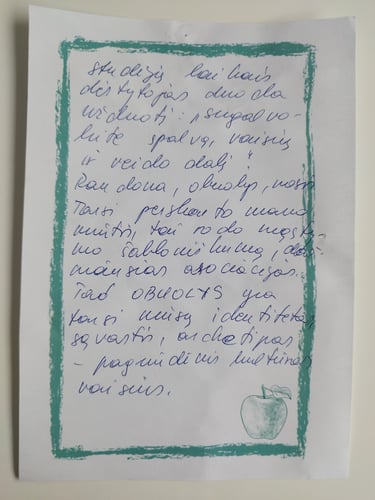 studijų laikais
dėstytojas duoda
užduotį: „sugalvo-
kite spalvą, vaisių
ir veido dalį".
Raudona, obuolys, nosis
Tarsi perskaito mano
mintis, tai rodo mąsty-
mo šabloniškumą, dažniausias
asociacijas...
Tad OBUOLYS yra
tarsi mūsų identiteto
sąvastis, archetipas
- pagrindinis kultūros
vaisius.